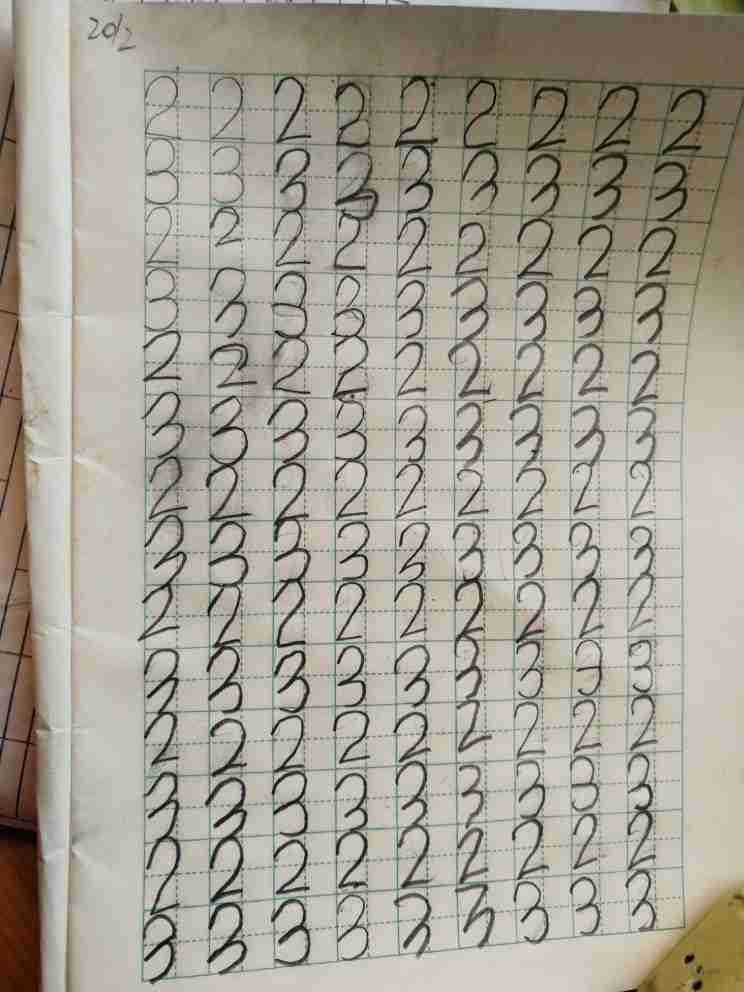 2 2 2 2 2 2 2 2 2
3 3 3 3 3 3 3 3 3
2 2 2 2 2 2 2 2 2
3 3 3 3 3 3 3 3 3
2 2 2 2 2 2 2 2 2
3 3 3 3 3 3 3 3 3
2 2 2 2 2 2 2 2 2
3 3 3 3 3 3 3 3 3
2 2 2 2 2 2 2 2 2
3 3 3 3 3 3 3 3 3
2 2 2 2 2 2 2 2 2
3 3 3 3 3 3 3 3 3
2 2 2 2 2 2 2 2 2
3 3 3 3 3 3 3 3 3